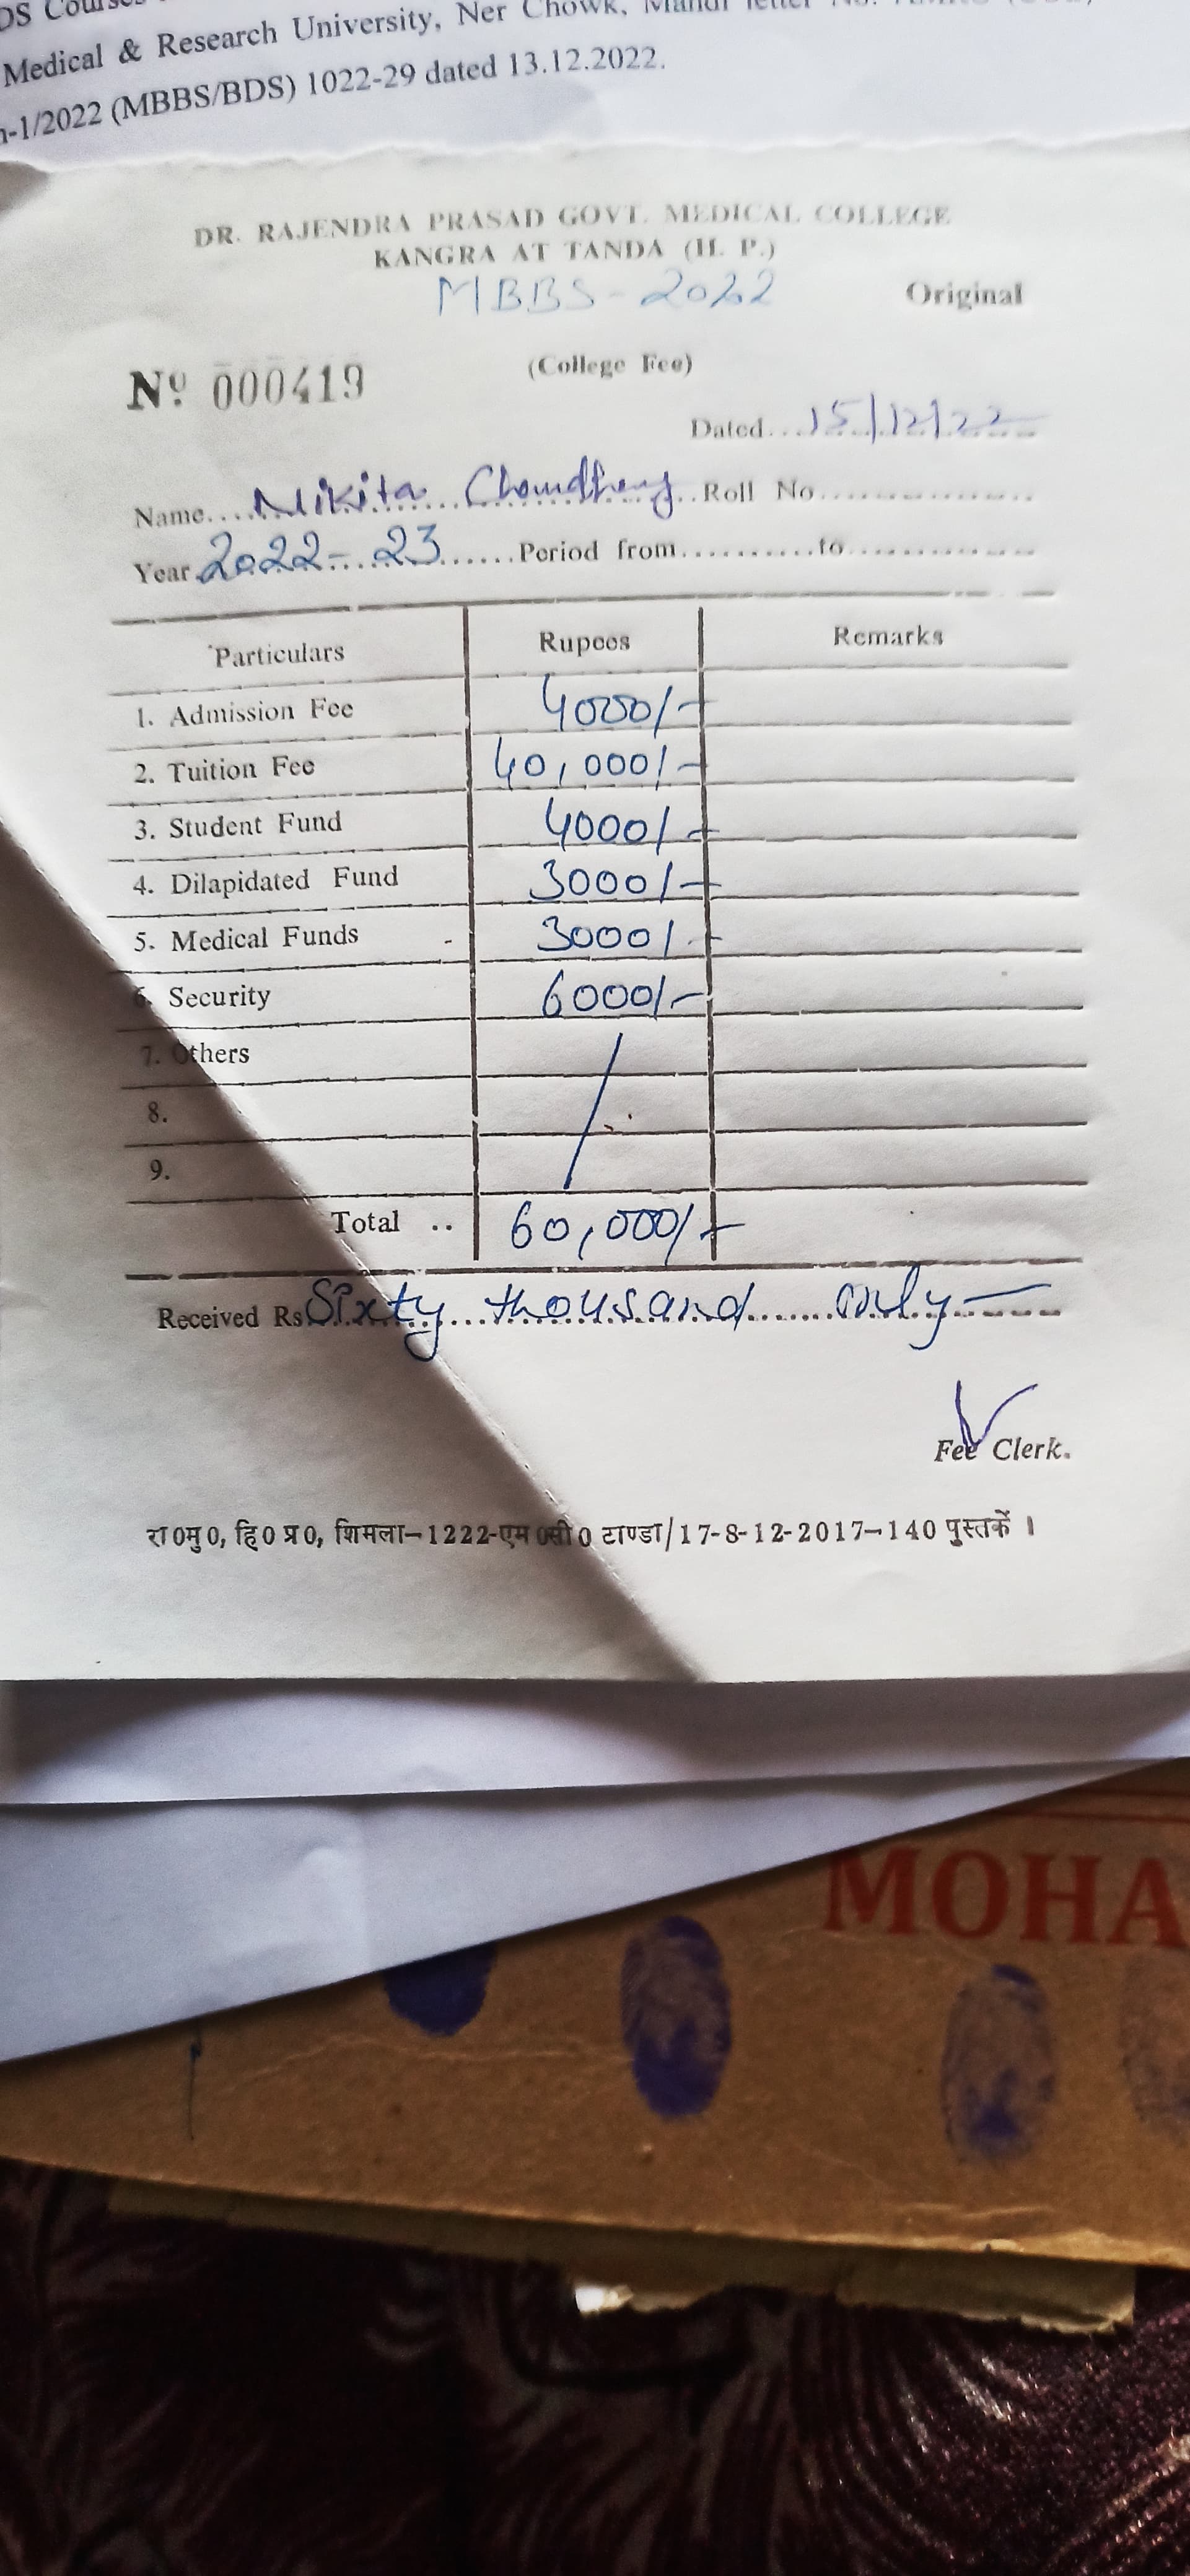 DS Courses
Medical & Research University, Ner Chowk, Mandi letter No.
n-1/2022 (MBBS/BDS) 1022-29 dated 13.12.2022.
DR. RAJENDRA PRASAD GOVT. MEDICAL COLLEGE
KANGRA AT TANDA (H. P.)
MBBS-2022
Original
(College Fee)
Nº 000419
Dated...15/12/22
Name....Nikita Choudhary..Roll No..................
Year.2022-23......Period from..........to...............
Particulars Rupees Remarks
1. Admission Fee 4000/-
2. Tuition Fee 40,000/-
3. Student Fund 4000/-
4. Dilapidated Fund 3000/-
5. Medical Funds 3000/-
6. Security 6000/-
7. Others
8.
9.
Total .. 60,000/-
Received Rs Sixty thousand only
Fee Clerk.
रा0मु0, हि0 प्र0, शिमला-1222-एम0सी0 टाण्डा/17-8-12-2017-140 पुस्तकें ।
MOHA